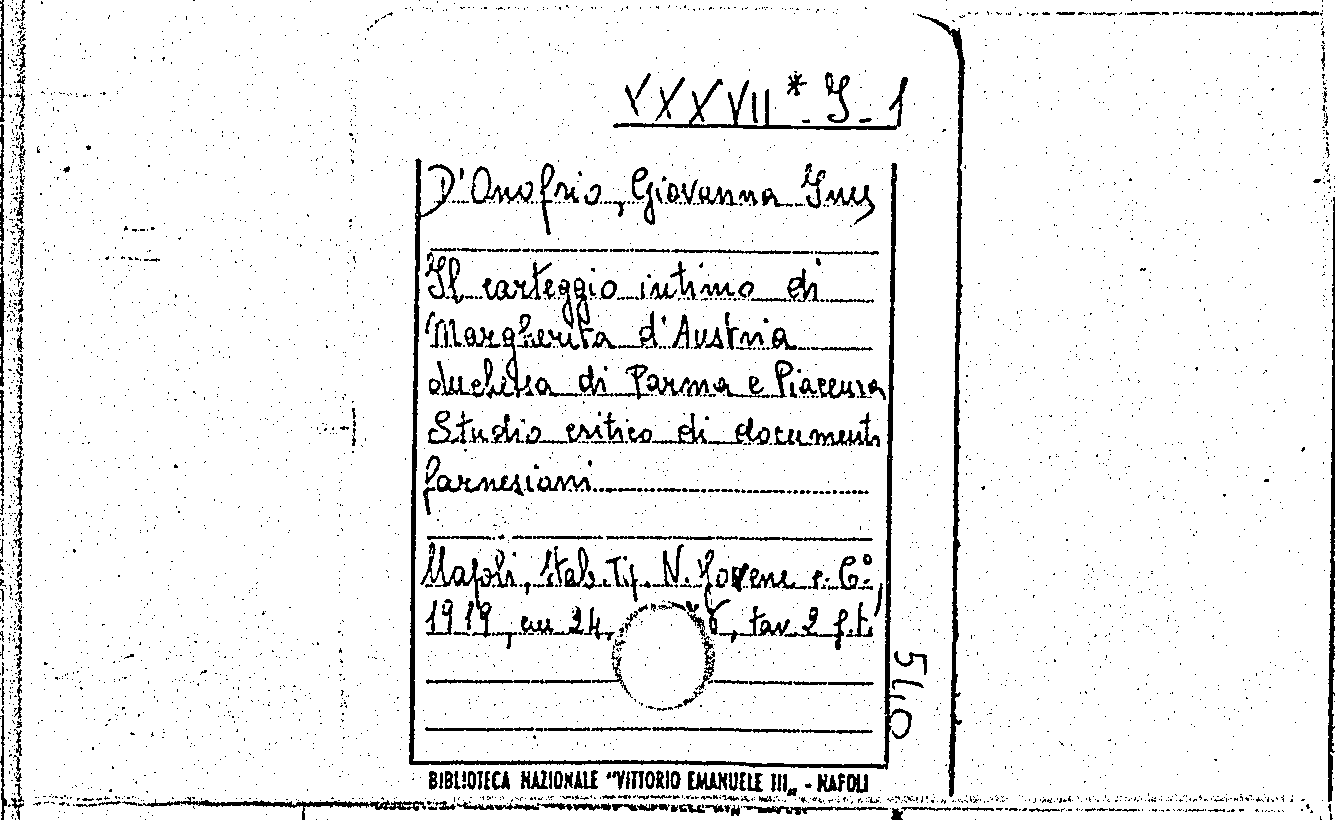 XXXVII * I - 1
D'Onofrio, Giovanna Ines
Il carteggio intimo di
Margherita d'Austria
duchessa di Parma e Piacenza
Studio critico di documenti
farnesiani
Napoli, Stab. Tip. N. Jovene e C°,
1919, cm 24, tav. 2 f.t.
540
BIBLIOTECA NAZIONALE "VITTORIO EMANUELE III„ - NAPOLI